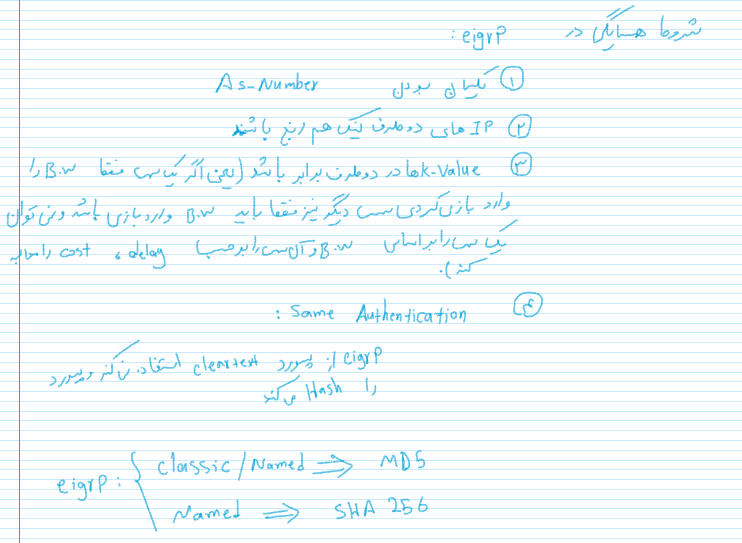 شروط همسایگی در eigrp :
① یکسان بودن As-Number
② IP های دو طرف لینک هم رنج باشند
③ k-Value ها در دو طرف برابر باشد (یعنی اگر یک سمت فقط B.W را
وارد بازی کردی سمت دیگر نیز فقط باید B.W وارد بازی باشد و نمی توان
یک سمت را بر اساس B.W و آن سمت را بر حسب delay ، cost را محاسبه
کند).
④ Same Authentication :
eigrp از پسورد cleartext استفاده نمی کند و پسورد
را Hash می کند
eigrp : { classic / Named ⇒ MD5
Named ⇒ SHA 256